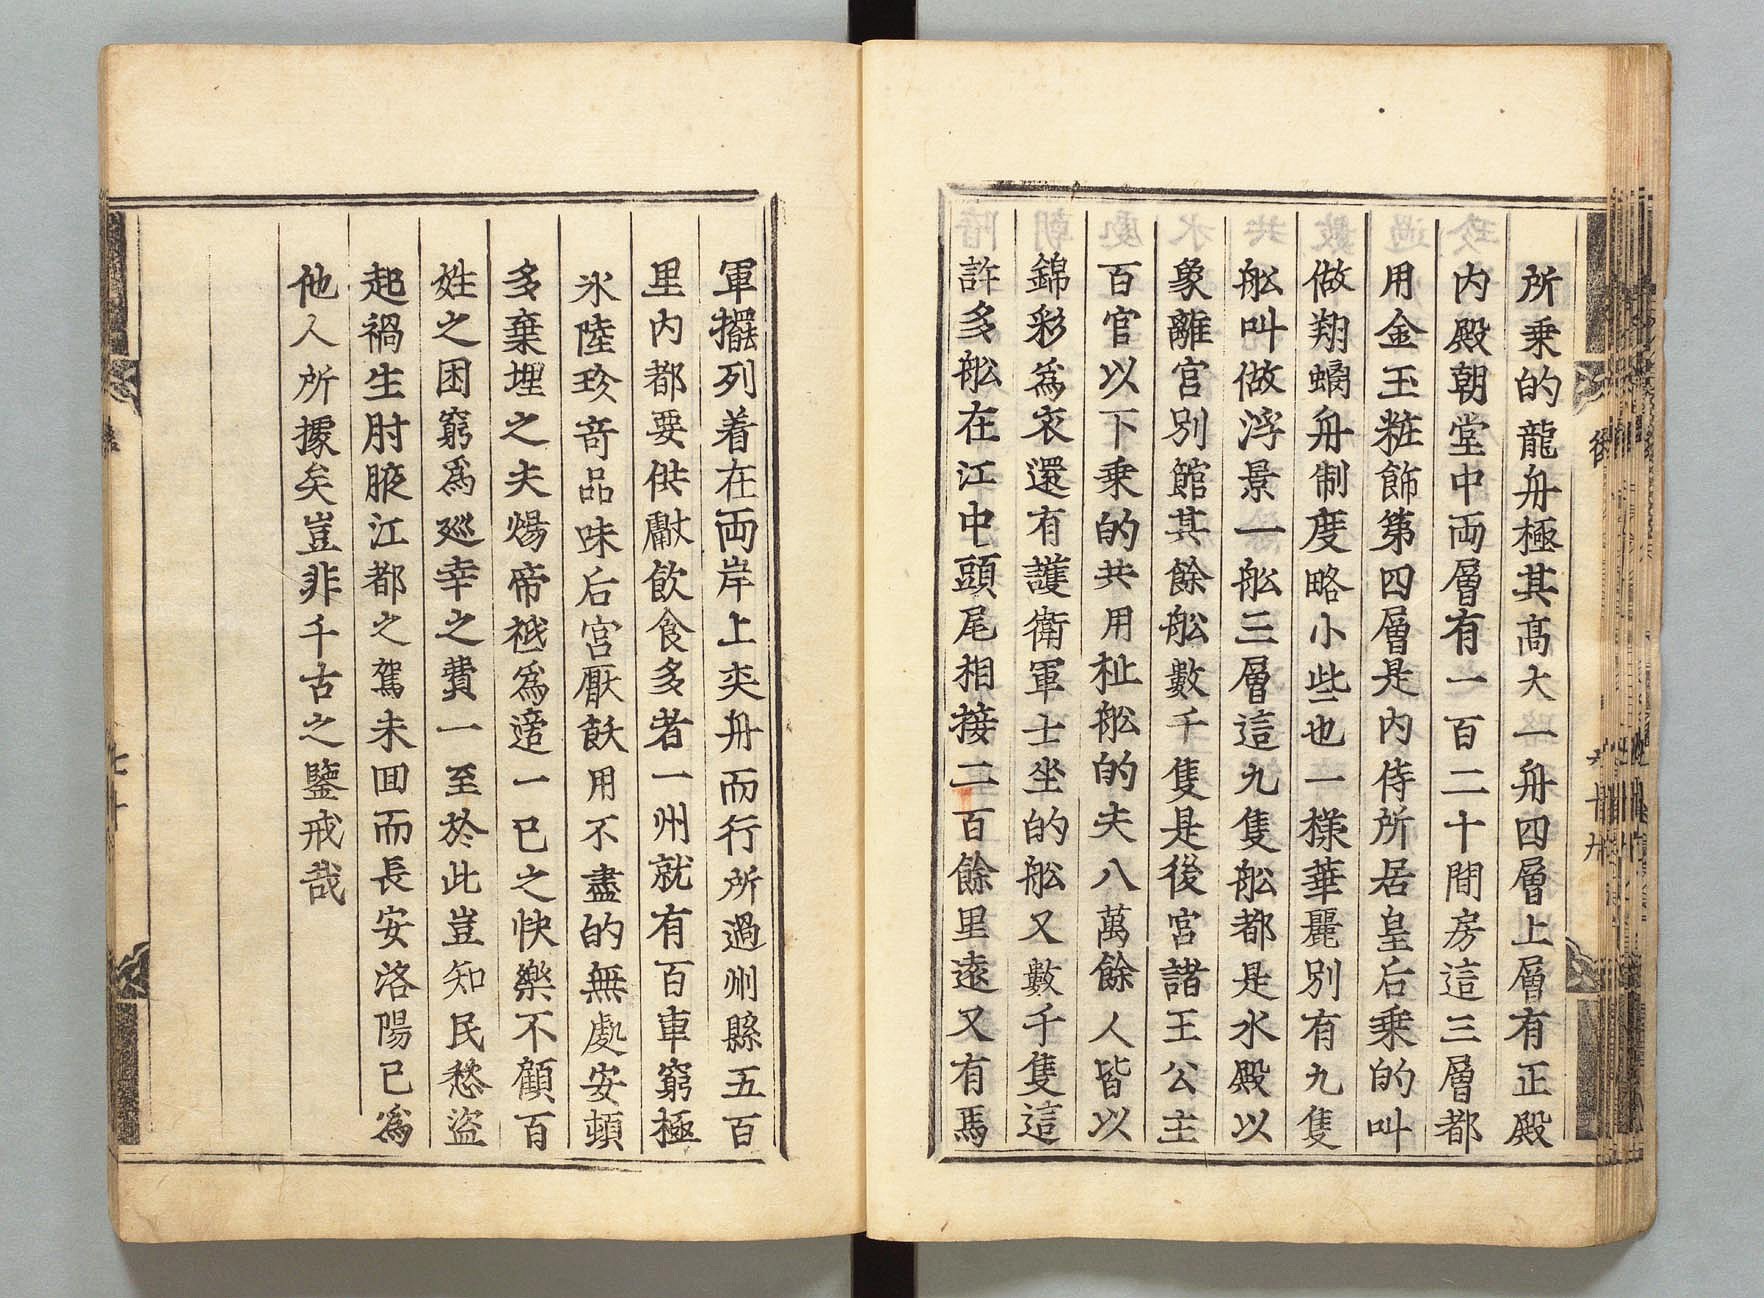 所乗的龍舟極其高大一舟四層上層有正殿
内殿朝堂中両層有一百二十間房這三層都
用金玉粧飾第四層是内侍所居皇后乗的叫
做翔螭舟制度略小些也一様華麗別有九隻
舩叫做浮景一舩三層這九隻舩都是水殿以
象離宮別館其餘舩數千隻是後宮諸王公主
百官以下乗的共用杫舩的夫八萬餘人皆以
錦彩爲衣還有護衛軍士坐的舩又數千隻這
許多舩在江中頭尾相接二百餘里遠又有馬
軍擺列着在両岸上夾舟而行所過州縣五百
里内都要供獻飲食多者一州就有百車窮極
水陸珍竒品味后宮厭飫用不盡的無處安頓
多棄埋之夫煬帝袛爲遊一已之快樂不顧百
姓之困窮爲廵幸之費一至於此豈知民愁盜
起禍生肘腋江都之駕未囬而長安洛陽已爲
他人所據矣豈非千古之鑒戒哉